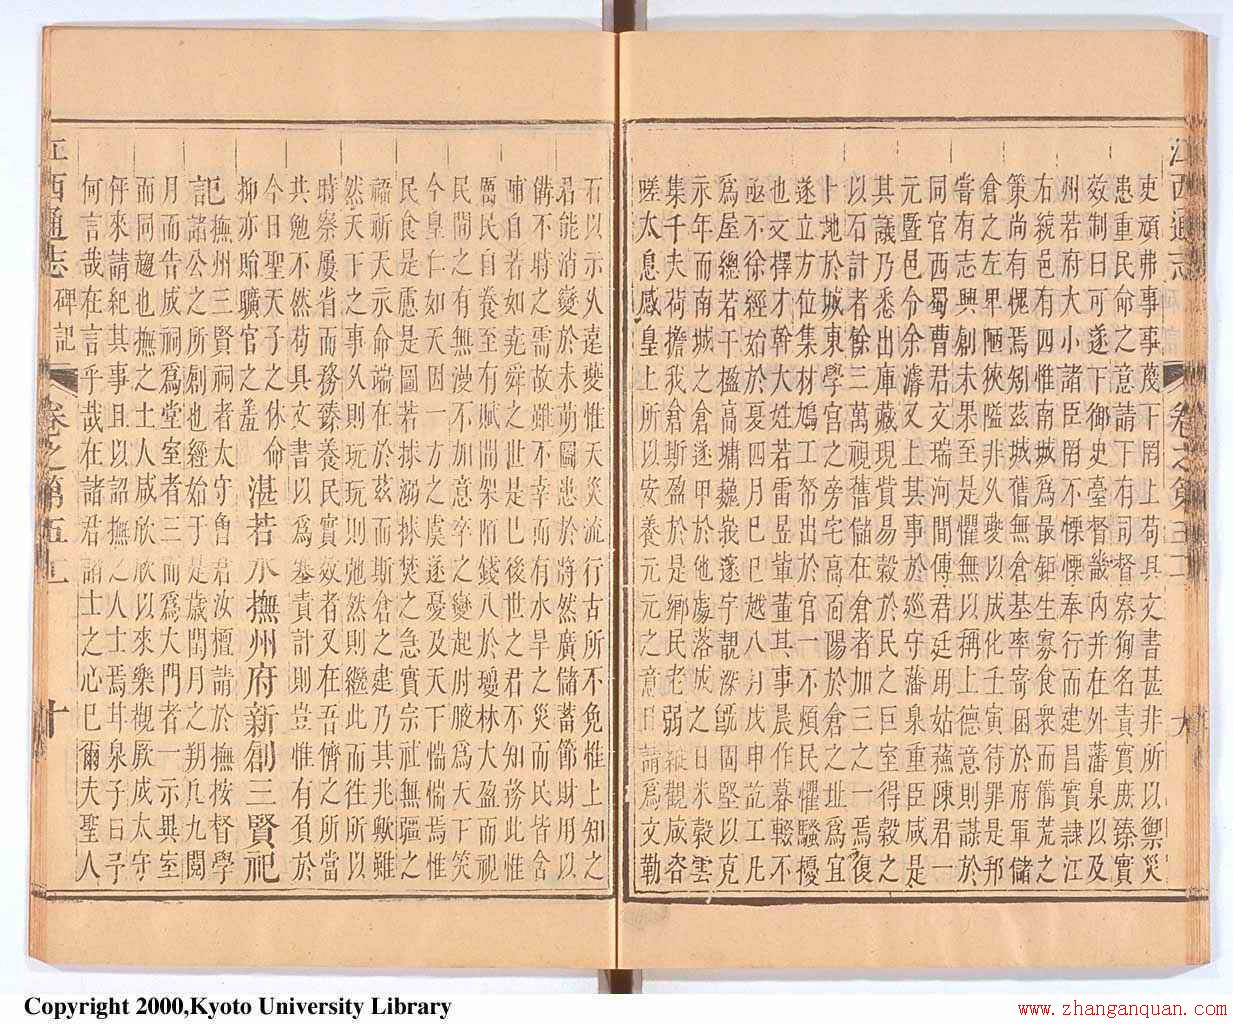 吏頑弗事事蔑下罔上苟具文書甚非所以禦災
患重民命之意請下有司督察徇名責實庶臻實
效制曰可遂下御史臺督畿內并在外藩臬以及
州若府大小諸臣罔不慄慄奉行而建昌實隷江
右統邑有四惟南城爲最鉅生寡食衆而備荒之
策尚有愧焉矧茲城舊無倉基率寄囷於府軍儲
倉之左卑陋狹隘非久
嘗有志興創未果至是懼無以稱上德意則謀於
同官西蜀曹君文瑞河間傅君廷玥姑蘓陳君一
元暨邑令余濬又上其事於巡守藩臬重臣咸是
其議乃悉出庫藏現貲易穀於民之巨室得穀之
以石計者餘三萬視舊儲在倉者加三之一焉復
卜地於城東學宮之旁宅高面陽於倉之址爲宜
遂立方位集材鳩工帑出於官一不煩民懼騷擾
也文擇才幹大姓若雷昱軰董其事晨作暮輟不
亟不徐經始於夏四月己巳越八月戊申訖工凡
爲屋總若干楹高墉巍峩遂宇靚深甒固堅以克
示年而南城之倉遂甲於他處落城之日米穀雲
集千夫荷擔我倉斯盈於是鄉民老弱縱觀咸咨
嗟太息感皇上所以安養元元之意日請爲文勒
石以示久遠夔惟天災流行古所不免惟上知之
君能消變於未萌圖患於將然廣儲蓄節財用以
備不時之需故雖不幸而有水旱之災而民皆含
哺自若如堯舜之世是已後世之君不知務此惟
厲民自養至有賦間架陌錢八於瓊林大盈而視
民間之有無漫不加意卒之變起肘腋爲天下笑
今皇仁如天因一方之虞遂憂及天下惴惴焉惟
民食是慮是圖若拯溺捄焚之急實宗社無疆之
福祈天永命端在於茲而斯倉之建乃其兆歟雖
然天下之事久則玩玩則弛然則繼此而徃所以
時察屢省而務臻養民實效者又在吾儕之所當
共勉不然苟具文書以爲塞責計則豈惟有負於
今日聖天子之休命
抑亦貽曠官之羞　湛若水撫州府新創三賢祀
記撫州三賢祠者大守曾君汝檀請於撫按督學
諸公之所創也經始于是歲閏月之朔凡九閱
月而告成祠爲堂室者三而爲大門者一示異室
而同趨也撫之士人咸欣欣以來樂觀厥成太守
伻來請紀其事且以詔撫之人士焉甘泉子曰予
何言哉在言乎哉在諸君諸士之心已爾夫聖人
江西通志
卷之第五十一
江西通志 碑記
卷之第五十一
十
Copyright 2000,Kyoto University Library
www.zhanganquan.com